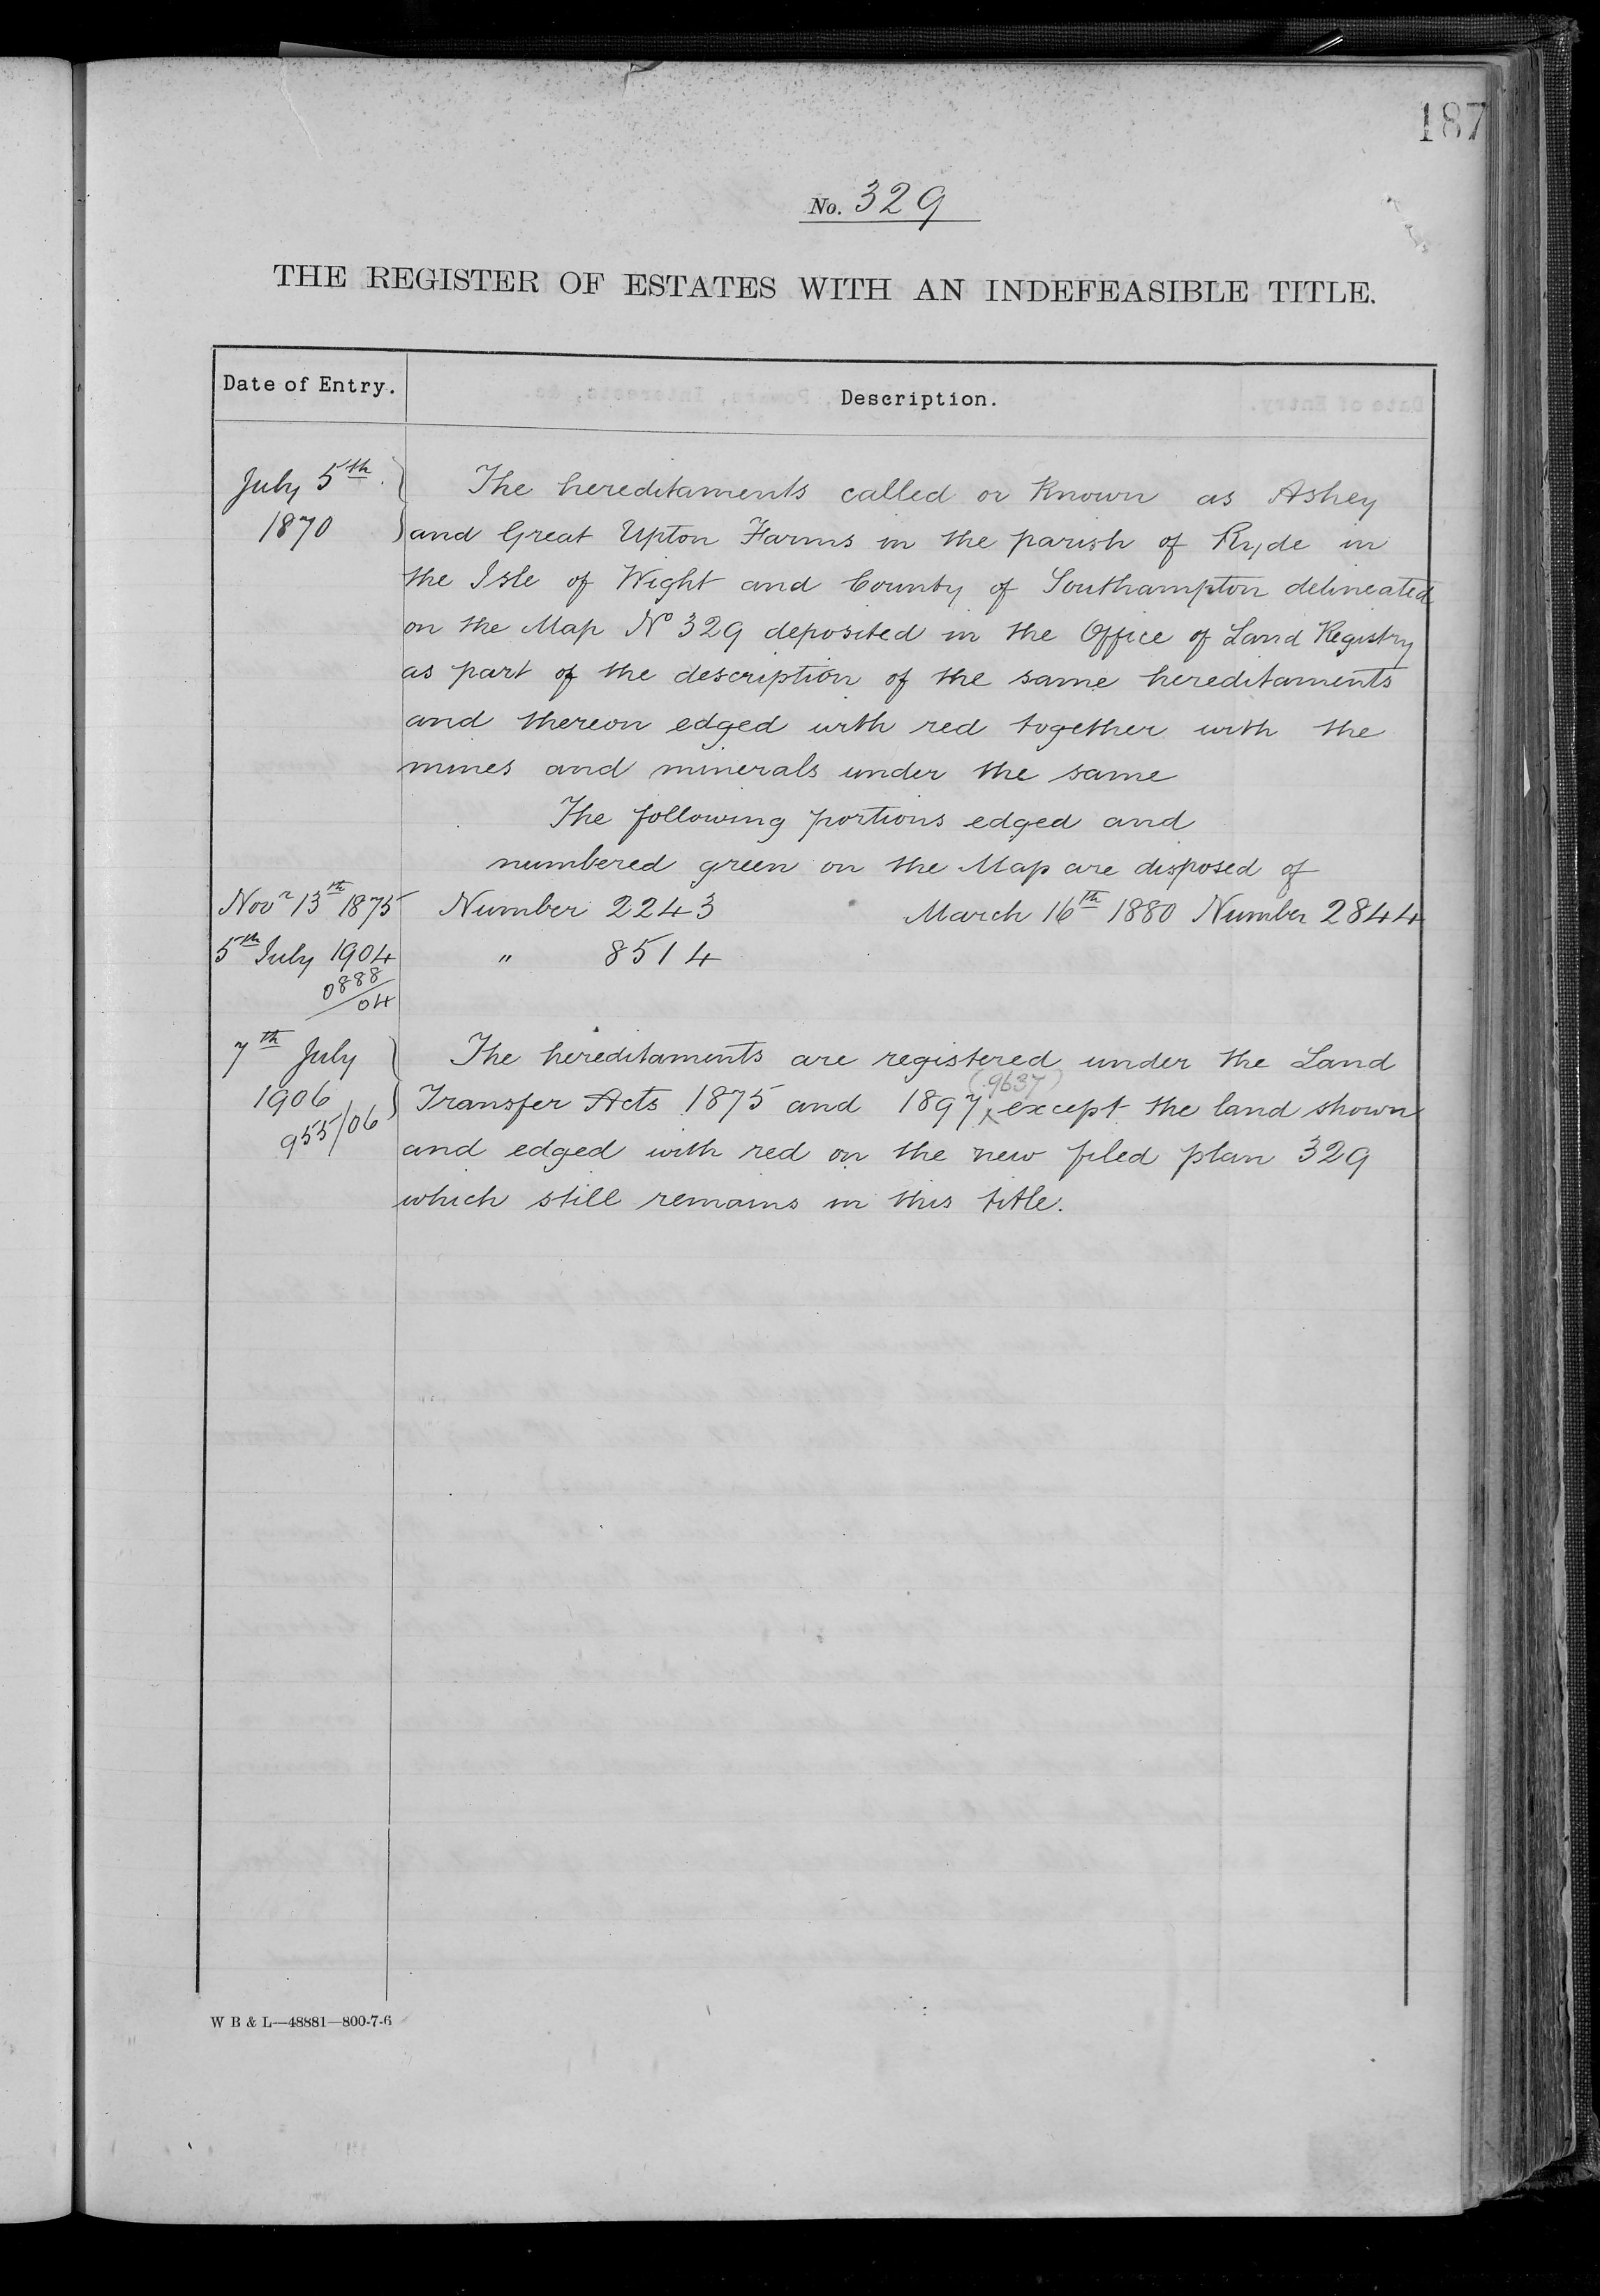 187
No. 329
THE REGISTER OF ESTATES WITH AN INDEFEASIBLE TITLE.
Date of Entry. Description.
July 5th. The hereditaments called or known as Ashey
1870 and Great Upton Farms in the parish of Ryde in
the Isle of Wight and County of Southampton delineated
on the Map No 329 deposited in the Office of Land Registry
as part of the description of the same hereditaments
and thereon edged with red together with the
mines and minerals under the same
The following portions edged and
numbered green on the Map are disposed of
Novr 13th 1875 Number 2243 March 16th 1880 Number 2844
5th July 1904 " 8514
0888/04
7th July The hereditaments are registered under the Land
(9637)
1906 Transfer Acts 1875 and 1897 except the land shown
955/06 and edged with red on the new filed plan 329
which still remains in this title.
W B & L—48881—800-7-6